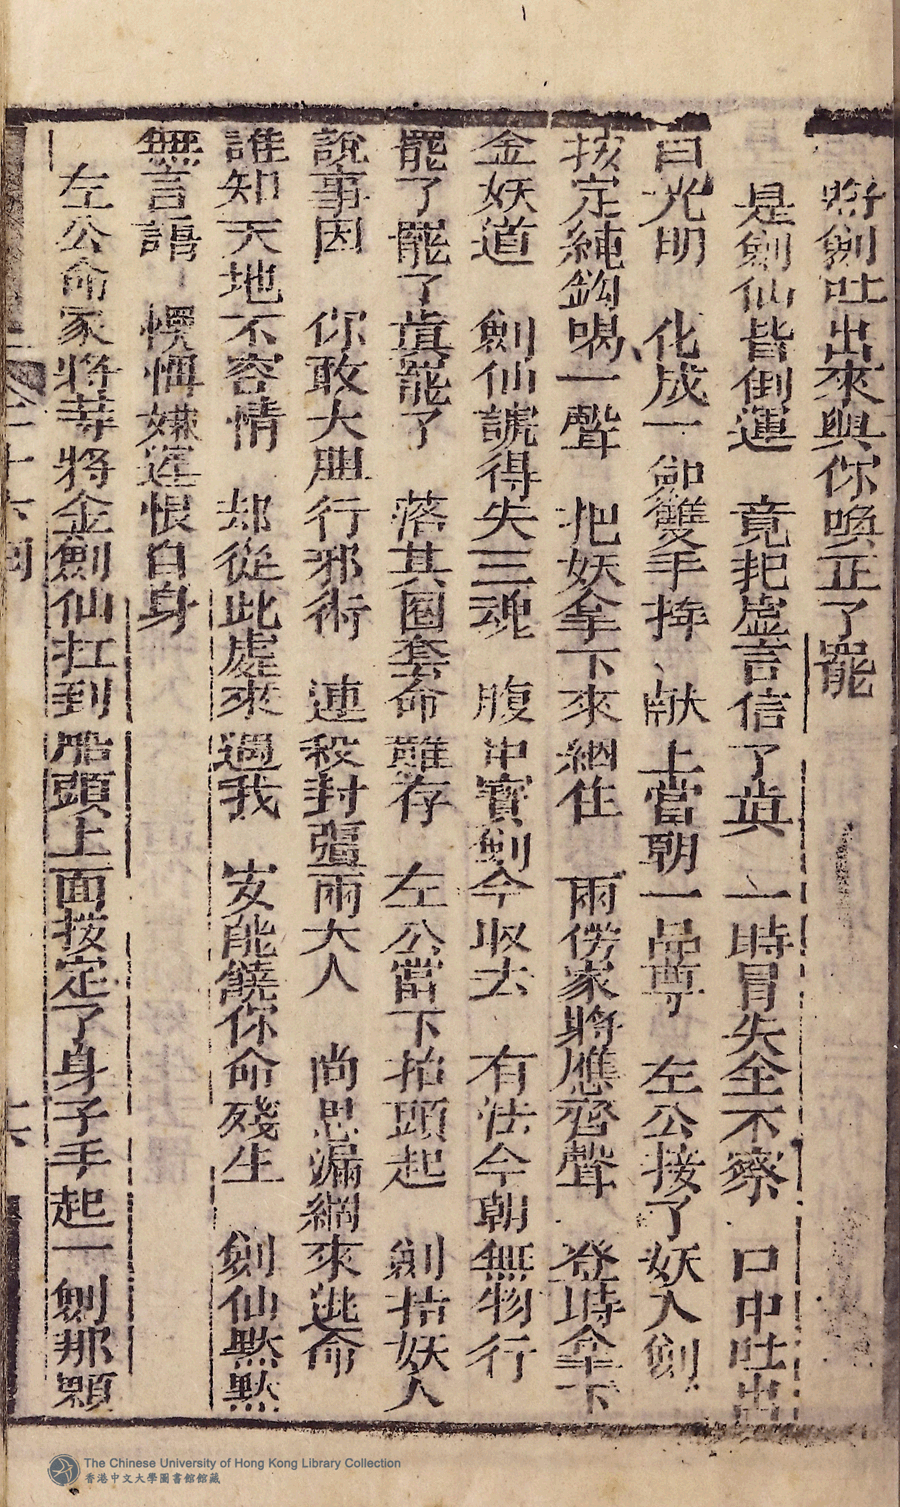 將劍吐出來與你喚正了罷
是劍仙皆倒運　竟把虛言信了眞　一時冒失全不察　口中吐出
白光明　化成一劍雙手捧　献上當朝一品尊　左公接了妖人劍
拔定純鈎喝一聲　把妖拿下來綑住　兩傍家將應齊聲　登時拿下
金妖道　劍仙諕得失三魂　腹中寶劍今收去　有法今朝無物行
罷了罷了眞罷了　落其圈套命難存　左公當下抬頭起　劍指妖人
說事因　你敢大胆行邪術　連殺封疆兩大人　尚思漏網來逃命
誰知天地不容情　却從此處來遇我　安能饒你命殘生　劍仙默默
無言語　懊悔嫌遲恨自身
左公命家將等將金劍仙扛到船頭上面按定了身子手起一劍那顆
二十六回
十六
The Chinese University of Hong Kong Library Collection
香港中文大學圖書館館藏